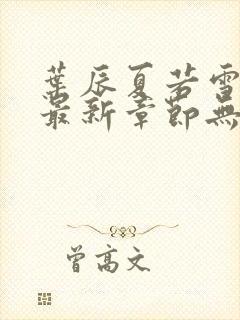 葉辰夏若雪
最新章節無
曾高文